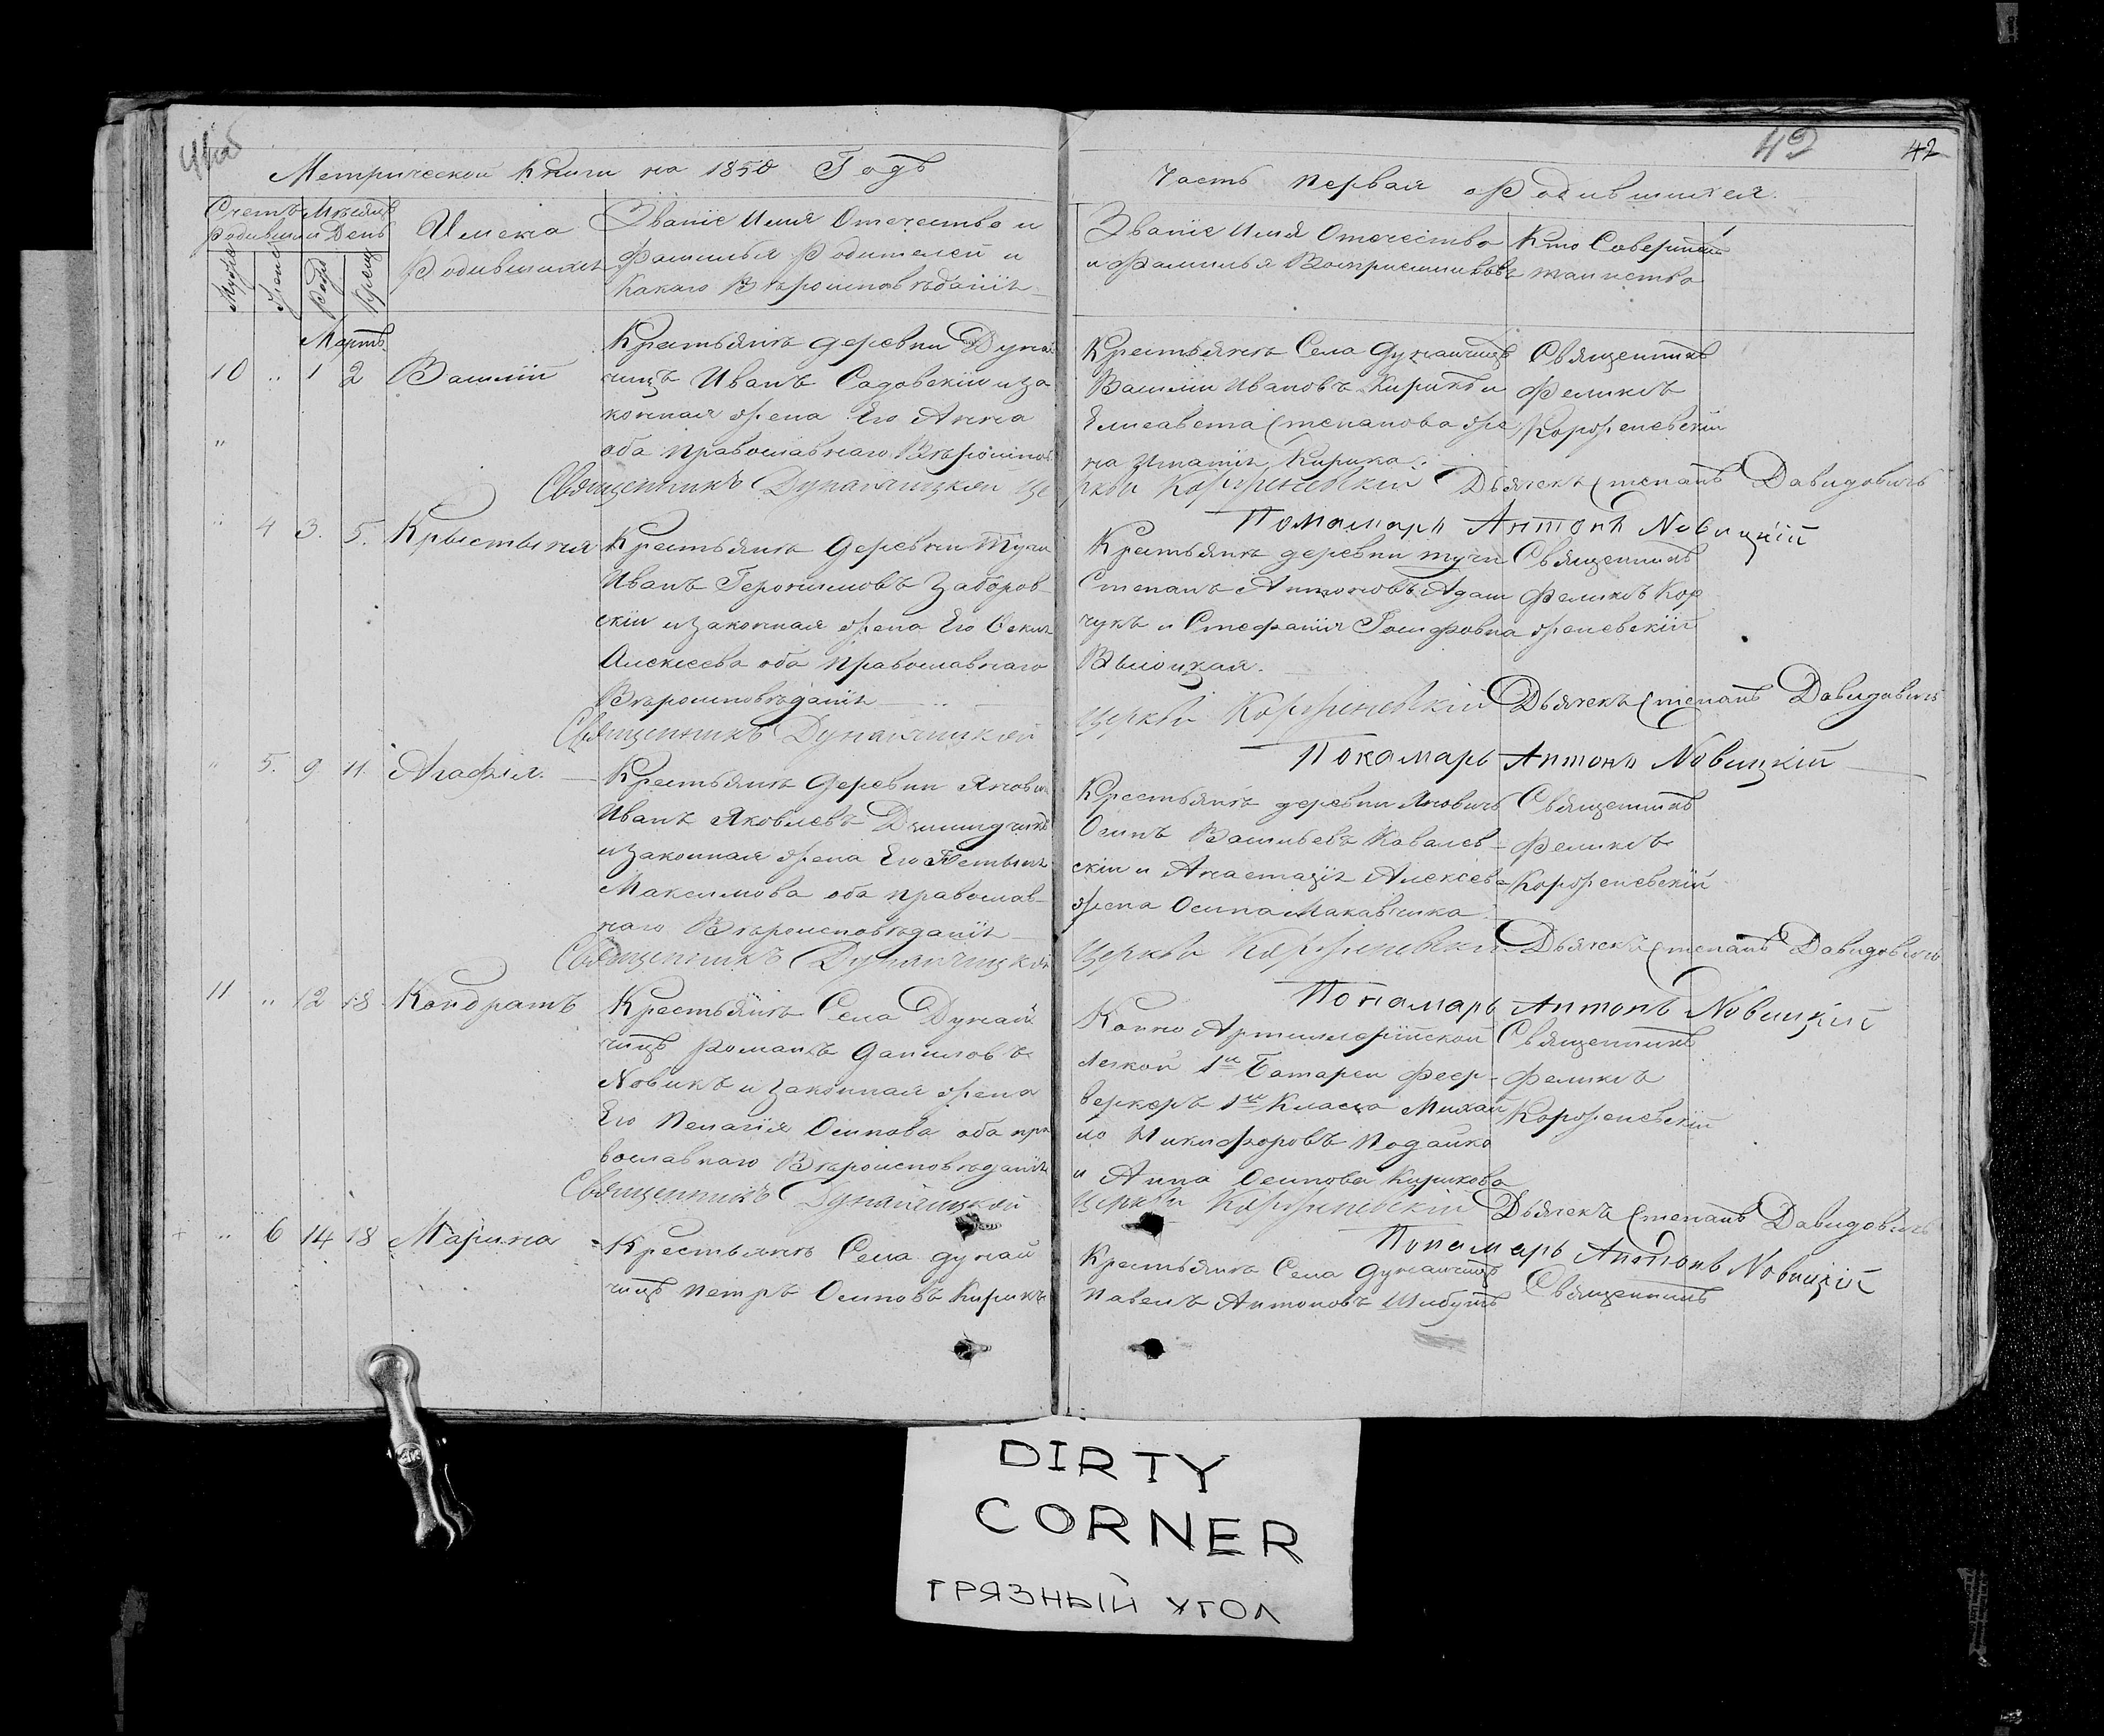 42
42
Метрической Книги на 1850 Годъ
Часть Первая о Родившихся.
Счетъ Родивши
Мѣсяцъ и День
Имена Родившихся
Званіе Имя Отечество и
Фамилья Родителей и
Какаго Вѣроисповѣданія
Званіе Имя Отечество
и Фамилья Воспріемниковъ
Кто Совершалъ
таинство
Муже
Женс
Родо
Крещ
Мартъ
10 " 1 2 Василій
Крестьянъ деревни Дунай
чицъ Иванъ Садовскій и за
конная жена Его Анна
оба Православнаго Вѣроиспов
Крестьянъ Села Дунайчицъ
Василій Ивановъ Кирикъ и
Елисавета Степанова же
на Игнатія Кирика.
Священникъ
Феликсъ
Корженевскій
Священникъ Дунайчицкой Це
ркви Корженевскій Дьячекъ Степанъ Давидовичъ
Пономарь Антонъ Новицкій
" 4 3. 5. Крыстыния
Крестьянъ Деревни Тучи
Иванъ Героnимовъ Заборов
скій и законная жена Его
Алексеева оба Православнаго
Вѣроисповѣданія
Крестьянъ деревни тучи
Степанъ Антоновъ Адам
чукъ и Стефанія Іосифовна
Высоцкая.
Священникъ
Феликсъ Кор
женевскій
Священникъ Дунайчицкой
Церкви Корженевскій Дьячекъ Степанъ Давидовичъ
Пономарь Антонъ Новицкій
" 5. 9 11. Агафія.
Крестьянъ Деревни Яновичъ
Иванъ Яковлевъ
и законная жена Его
Максимова оба православ-
наго Вѣроисповѣданія
Крестьянъ деревни Яновичъ
Осипъ Васильевъ Ковалев-
скій и Анастазія Алексеева
жена Осипа Макавчика.
Священникъ
Феликсъ
Корженевскій
Священникъ Дунайчицкой
Церкви Корженевскій Дьячекъ Степанъ Давидовичъ
Пономарь Антонъ Новицкій
11 " 12 18 Кондратъ
Крестьянъ Села Дунай
чицъ Романъ Даниловъ
Новикъ и законная жена
Его Пелагія Осипова оба пра
вославнаго Вѣроисповѣданія
Конно Артиллерійской
Легкой 1й Батареи Феер-
веркеръ 1го Класса Михай
ло Никифоровъ Подайко
и Анна Осипова Кирикова
Священникъ
Феликсъ
Корженевскій
Священникъ Дунайчицкой
Церкви Корженевскій Дьячекъ Степанъ Давидовичъ
Пономарь Антонъ Новицкій
" 6 14 18 Марина
Крестьянъ Села дунай
чицъ Петръ Осиповъ Кирикъ
Крестьянъ Села Дунайчицъ
Павелъ Антоновъ Шибутъ
Священникъ
DIRTY
CORNER
ГРЯЗНЫЙ УГОЛ